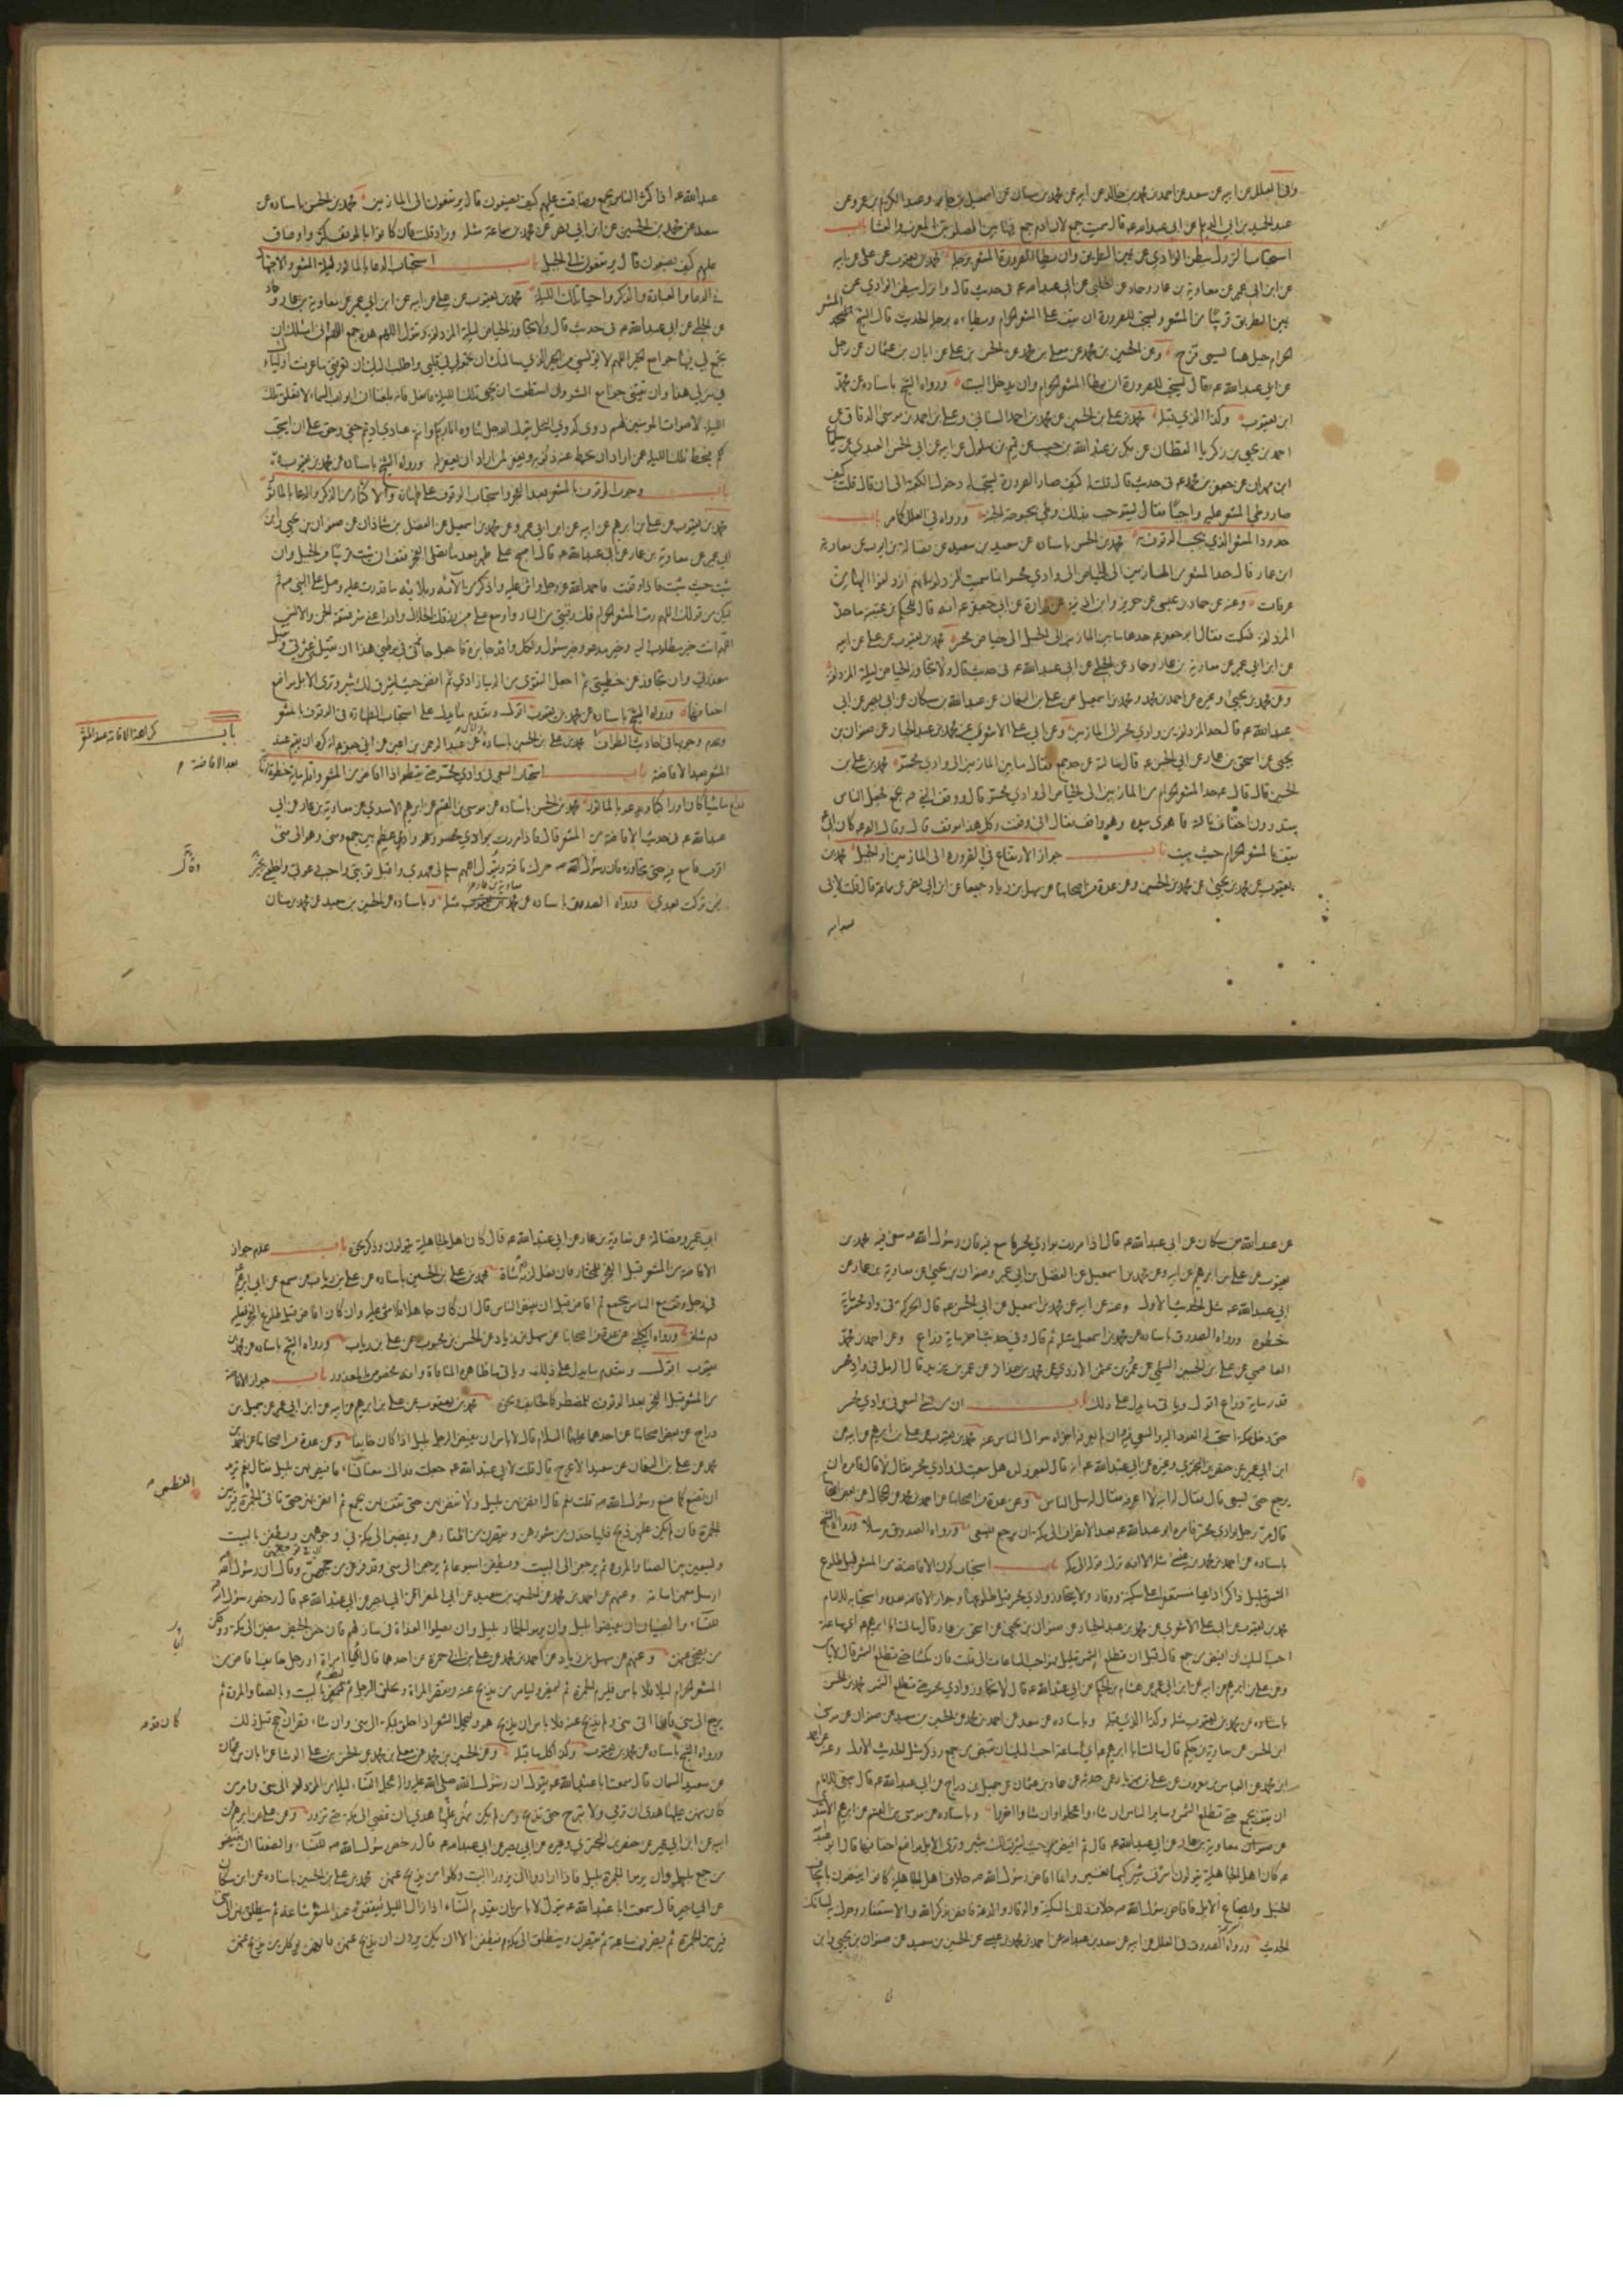 وفي العلل عن ابيه عن سعد عن احمد بن محمد بن خالد عن ابيه عن محمد بن سنان عن اسمعيل بن جابر وعبد الكريم بن عمرو عن
عبد الحميد بن ابي الديلم عن ابي عبد الله ع قال سميت جمع لان ادم جمع فيها بين الصلوتين المغرب والعشا باب
استحباب النزول ببطن الوادي عن يمين الطريق وان يطأ الصرورة المشعر برجله محمد بن يعقوب عن علي عن ابيه
عن ابن ابي عمير عن معاوية بن عمار وحماد عن الحلبي عن ابي عبد الله ع في حديث قال وانزل ببطن الوادي عن
يمين الطريق قريبا من المشعر ويستحب للصرورة ان يقف على المشعر الحرام ويطاءه برجله الحديث قال الشيخ المشعر
الحرام جبل هناك يسمى قزح وعن الحسين بن محمد عن معلى بن محمد عن الحسن بن علي عن ابان بن عثمان عن رجل
عن ابي عبد الله ع قال يستحب للصرورة ان يطأ المشعر الحرام وان يدخل البيت ورواه الشيخ باسناده عن محمد
ابن يعقوب وكذا الذي قبله محمد بن علي بن الحسين عن محمد بن احمد السناني وعلي بن احمد بن موسى الدقاق عن
احمد بن يحيى بن زكريا القطان عن بكر بن عبد الله بن حبيب عن تميم بن بهلول عن ابيه عن ابي الحسن العبدي عن سليمان
ابن مهران عن جعفر بن محمد ع في حديث قال قلت له كيف صار الصرورة يستحب له دخول الكعبة الى ان قال قلت كيف
صار وطي المشعر عليه واجبا فقال ليستوجب بذلك وطي بحبوحة الجنة ورواه في العلل كما مر باب
حدود المشعر الذي يجب الوقوف به محمد بن الحسن باسناده عن سعيد بن سعيد عن فضالة بن ايوب عن معاوية
ابن عمار قال حد المشعر من المازمين الى الحياض الى وادي محسر وانما سميت المزدلفة لانهم ازدلفوا اليها من
عرفات وعنه عن حماد بن عيسى عن حريز وابن اذينة عن زرارة عن ابي جعفر ع انه قال للحكم بن عتيبة ما حد
المزدلفة فسكت فقال ابو جعفر ع حدها ما بين المازمين الى الجبل الى حياض محسر محمد بن يعقوب عن علي عن ابيه
عن ابن ابي عمير عن معاوية بن عمار وحماد عن الحلبي عن ابي عبد الله ع في حديث قال ولا تجاوز الحياض ليلة المزدلفة
وعن محمد بن يحيى وغيره عن احمد بن محمد ومحمد بن اسمعيل عن علي بن النعمان عن عبد الله بن مسكان عن ابي بصير عن ابي
عبد الله ع قال حد المزدلفة من وادي محسر الى المازمين وعن ابي علي الاشعري عن محمد بن عبد الجبار عن صفوان بن
يحيى عن اسحق بن عمار عن ابي الحسن ع قال سالته عن حد جمع فقال ما بين المازمين الى وادي محسر محمد بن علي بن
الحسين قال قال ع حد المشعر الحرام من المازمين الى الحياض الى وادي محسر قال ووقف النبي ص بجمع فجعل الناس
يبتدرون اخفاف ناقته فاهوى بيده وهو واقف فقال اني وقفت وكل هذا موقف قال وقال الصادق ع كان ابي
يقف بالمشعر الحرام حيث يبيت باب جواز الارتفاع في الضرورة الى المازمين او الجبل محمد بن
يعقوب عن محمد بن يحيى عن محمد بن الحسين وعن عدة من اصحابنا عن سهل بن زياد جميعا عن ابن ابي نصر عن سماعة قال قلت لابي
عبد الله
عبد الله ع اذا كثر الناس بجمع وضاقت عليهم كيف يصنعون قال يرتفعون الى المازمين محمد بن الحسن باسناده عن
سعد عن محمد بن الحسين عن ابن ابي نصر عن محمد بن سماعة مثله وزاد قلت فان كانوا بالموقف كثروا وضاق
عليهم كيف يصنعون قال يرتفعون الى الجبل باب استحباب الدعا بالماثور ليلة المشعر والاجتهاد
في الدعا والعبادة والذكر واحيا تلك الليلة محمد بن يعقوب عن علي عن ابيه عن ابن ابي عمير عن معاوية بن عمار وحماد
عن الحلبي عن ابي عبد الله ع في حديث قال ولا تجاوز الحياض ليلة المزدلفة وتقول اللهم هذه جمع اللهم اني اسئلك ان
تجمع لي فيها جوامع الخير اللهم لا تؤيسني من الخير الذي سالتك ان تجمعه لي في قلبي واطلب اليك ان تعرفني ما عرفت اولياءك
في منزلي هذا وان تقيني جوامع الشر وان استطعت ان تحيي تلك الليلة فافعل فانه بلغنا ان ابواب السماء لا تغلق تلك
الليلة لاصوات المؤمنين لهم دوي كدوي النحل يقول الله جل ثناؤه انا ربكم وانتم عبادي اديتم حقي وحق علي ان استجيب
لكم فيحط تلك الليلة عمن اراد ان يحط عنه ذنوبه ويغفر لمن اراد ان يغفر له ورواه الشيخ باسناده عن محمد بن يعقوب
باب وجوب الوقوف بالمشعر بعد الفجر واستحباب الوقوف على طهارة والاكثار من الذكر والدعا بالماثور
محمد بن يعقوب عن علي بن ابرهيم عن ابيه عن ابن ابي عمير وعن محمد بن اسمعيل عن الفضل بن شاذان عن صفوان بن يحيى وابن
ابي عمير عن معاوية بن عمار عن ابي عبد الله ع قال اصبح على طهر بعد ما تصلي الفجر فقف ان شئت قريبا من الجبل وان
شئت حيث شئت فاذا وقفت فاحمد الله عز وجل واثن عليه واذكر من آلائه وبلائه ما قدرت عليه وصل على النبي ص ثم
ليكن من قولك اللهم رب المشعر الحرام فك رقبتي من النار واوسع علي من رزقك الحلال وادرأ عني شر فسقة الجن والانس
اللهم انت خير مطلوب اليه وخير مدعو وخير مسئول ولكل وافد جائزة فاجعل جائزتي في موطني هذا ان تقيلني عثرتي وتقبل
معذرتي وان تجاوز عن خطيئتي ثم اجعل التقوى من الدنيا زادي ثم افض حيث يشرق لك ثبير وترى الابل مواضع
اخفافها ورواه الشيخ باسناده عن محمد بن يعقوب اقول وتقدم ما يدل على استحباب الطهارة في الوقوف بالمشعر
وعدم وجوبها في احاديث الطواف محمد بن علي بن الحسين باسناده عن عبد الرحمن بن اعين عن ابي جعفر ع انه كره ان يقيم عند
المشعر بعد الافاضة باب استحباب السعي في وادي محسر حتى يقطعه اذا افاض من المشعر واقله ماية خطوة
ذراع ماشيا كان او راكبا ويدعو بالماثور محمد بن الحسن باسناده عن موسى بن القسم عن ابرهيم الاسدي عن معاوية بن عمار عن ابي
عبد الله ع في حديث الافاضة من المشعر قال فاذا مررت بوادي محسر وهو وادي عظيم بين جمع ومنى وهو الى منى
اقرب فاسع فيه حتى تجاوزه فان رسول الله ص حرك ناقته ويقول اللهم سلم لي عهدي واقبل توبتي واجب دعوتي واخلفني بخير
فيمن تركت بعدي ورواه الصدوق باسناده عن معاوية بن عمار مثله وباسناده عن الحسين بن سعيد عن محمد بن سنان
باب كراهة الاقامة عند المشعر
بعد الافاضة
عن عبد الله بن مسكان عن ابي عبد الله ع قال اذا مررت بوادي محسر فاسع فيه فان رسول الله ص سعى فيه محمد بن
يعقوب عن علي بن ابرهيم عن ابيه وعن محمد بن اسمعيل عن الفضل عن ابن ابي عمير وصفوان بن يحيى عن معاوية بن عمار عن
ابي عبد الله ع مثل الحديث الاول وعنه عن ابيه عن محمد بن اسمعيل عن ابي الحسن ع قال الحركة في وادي محسر ماية
خطوة ورواه الصدوق باسناده عن محمد بن اسمعيل مثله ثم قال وفي حديث اخر ماية ذراع وعن احمد بن محمد
العاصمي عن علي بن الحسين السلمي عن عمرو بن عثمن الازدي عن محمد بن عذافر عن عمر بن يزيد قال الرمل في وادي محسر
قدر ماية ذراع اقول وياتي ما يدل على ذلك باب ان من ترك السعي في وادي محسر
ابن ابي عمير عن حفص بن البختري وغيره عن ابي عبد الله ع انه قال لبعض ولده هل سعيت في وادي محسر فقال لا قال فامره ان
يرجع حتى يسعى قال فقال له ابنه لا اعرفه فقال له سل الناس وعن عدة من اصحابنا عن احمد بن محمد عن الحجال عن بعض اصحابنا
قال مر رجل بوادي محسر فامره ابو عبد الله ع بعد الانصراف الى مكة ان يرجع فيسعى ورواه الصدوق مرسلا ورواه الشيخ
محمد بن يعقوب عن ابي علي الاشعري عن محمد بن عبد الجبار عن صفوان بن يحيى عن اسحق بن عمار قال سالت ابا ابرهيم ع اي ساعة
احب اليك ان افيض من جمع قال قبل ان تطلع الشمس بقليل فهو احب الساعات الي قلت فان مكثنا حتى تطلع الشمس قال لا باس
وعن علي بن ابرهيم عن ابيه عن ابن ابي عمير عن هشام بن الحكم عن ابي عبد الله ع قال لا تجاوز وادي محسر حتى تطلع الشمس محمد بن الحسن
باسناده عن محمد بن يعقوب مثله وكذا الذي قبله وباسناده عن سعد عن احمد بن محمد عن الحسين بن سعيد عن صفوان عن موسى
ابن الحسن عن معاوية بن حكيم قال سالت ابا ابرهيم ع اي ساعة احب اليك ان نفيض من جمع وذكر مثل الحديث الاول وعنه عن احمد
ان يقف بجمع حتى تطلع الشمس وساير الناس ان شاءوا عجلوا وان شاءوا اخروا وباسناده عن موسى بن القسم عن ابرهيم الاسدي
عن معاوية بن عمار عن ابي عبد الله ع قال ثم افض حين يشرق لك ثبير وترى الابل مواضع اخفافها قال ابو عبد الله
ع كان اهل الجاهلية يقولون اشرق ثبير كيما نغير وانما افاض رسول الله ص خلاف اهل الجاهلية كانوا يفيضون بايجاف
الخيل وايضاع الابل فافاض رسول الله ص خلاف ذلك بالسكينة والوقار والدعة فافض بذكر الله والاستغفار وحرك به لسانك
الحديث ورواه الصدوق في العلل عن ابيه عن سعد بن عبد الله عن احمد بن محمد بن عيسى عن الحسين بن سعيد عن صفوان بن يحيى وابن
ابي عمير وفضالة عن معاوية بن عمار عن ابي عبد الله ع قال كان اهل الجاهلية يقولون وذكر نحوه باب عدم جواز
الافاضة من المشعر قبل الفجر للمختار فان فعل لزمه شاة محمد بن علي بن الحسين باسناده عن علي بن رياب عن مسمع عن ابي ابرهيم
في رجل وقف مع الناس بجمع ثم افاض قبل ان يفيض الناس قال ان كان جاهلا فلا شئ عليه وان كان افاض قبل طلوع الفجر فعليه
دم شاة ورواه الكليني عن عدة من اصحابنا عن سهل بن زياد عن الحسن بن محبوب عن علي بن رياب ورواه الشيخ باسناده عن محمد بن
يعقوب اقول وتقدم ما يدل على ذلك وياتي ما ظاهره المنافاة وانه مخصوص بالمعذور باب جواز الافاضة
من المشعر قبل الفجر بعد الوقوف للمضطر كالخائف ونحوه محمد بن يعقوب عن علي بن ابرهيم عن ابيه عن ابن ابي عمير عن جميل بن
دراج عن بعض اصحابنا عن احدهما عليهما السلام قال لا باس ان يفيض الرجل بليل اذا كان خايفا وعن عدة من اصحابنا عن احمد بن
محمد عن علي بن النعمان عن سعيد الاعرج قال قلت لابي عبد الله ع جعلت فداك معنا نساء فافيض بهن بليل فقال نعم تريد
ان تصنع كما صنع رسول الله ص قلت نعم قال افض بهن بليل ولا تفض بهن حتى تقف بهن بجمع ثم افض بهن حتى تاتي الجمرة العظمى فيرمين
الجمرة فان لم يكن عليهن ذبح فلياخذن من شعورهن ويقصرن من اظفارهن ويمضين الى مكة في وجوههن ويطفن بالبيت
ويسعين بين الصفا والمروة ثم يرجعن الى البيت ويطفن اسبوعا ثم يرجعن الى منى وقد فرغن من حجهن وقال ان رسول الله ص
ارسل معهن اسامة وعنهم عن احمد بن محمد عن الحسين بن سعيد عن ابي المغرا عن ابي بصير عن ابي عبد الله ع قال رخص رسول الله ص
للنساء والصبيان ان يفيضوا بليل وان يرموا الجمار بليل وان يصلوا الغداة في منازلهم فان خفن الحيض مضين الى مكة ووكلن
من يضحي عنهن وعنهم عن سهل بن زياد عن احمد بن محمد عن علي بن ابي حمزة عن احدهما قال ايما امراة او رجل خائف افاض من
المشعر الحرام ليلا فلا باس فليرم الجمرة ثم ليمض وليامر من يذبح عنه وتقصر المراة ويحلق الرجل ثم ليطف بالبيت وبالصفا والمروة ثم
ورواه الشيخ باسناده عن محمد بن يعقوب وكذا كلما قبله وعن الحسين بن محمد عن معلى بن محمد عن الحسن بن علي الوشا عن ابان بن عثمان
عن سعيد السمان قال سمعت ابا عبد الله ع يقول ان رسول الله صلى الله عليه واله عجل النساء ليلا من المزدلفة الى منى وامر من
كان منهن عليها هدي ان ترمي ولا تبرح حتى تذبح ومن لم يكن منهن عليها هدي ان تمضي الى مكة حتى تزور وعن علي بن ابرهيم عن
ابيه عن ابن ابي عمير عن حفص بن البختري وغيره عن ابي بصير عن ابي عبد الله ع قال رخص رسول الله ص للنساء والضعفا ان يفيضوا
من جمع بليل وان يرموا الجمرة بليل فاذا ارادوا ان يزوروا البيت وكلوا من يذبح عنهن محمد بن علي بن الحسين باسناده عن ابن مسكان
عن ابي بصير قال سمعت ابا عبد الله ع يقول لا باس بان يقدم النساء اذا زال الليل فيقفن عند المشعر ساعة ثم ينطلق بهن الى منى
فيرمين الجمرة ثم يصبرن ساعة ثم يقصرن وينطلقن الى مكة فيطفن الا ان يكن يردن ان يذبح عنهن فانهن يوكلن من يذبح عنهن
العظمى